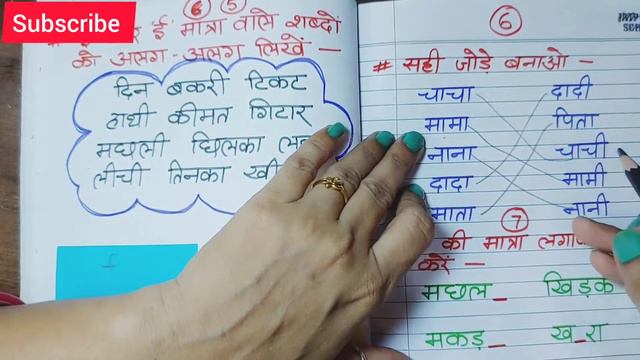 Subscribe
⑤
मात्रा वाले शब्दों
को अलग-अलग लिखें -
दिन बकरी टिकट
हाथी कीमत गिटार
मछली छिलका
लीची तिनका
⑥
# सही जोड़े बनाओ -
चाचा दादी
मामा पिता
नाना चाची
दादा मामी
माता नानी
⑦
की मात्रा
करें -
मछल_ खिड़क
मकड़_ ख_रा